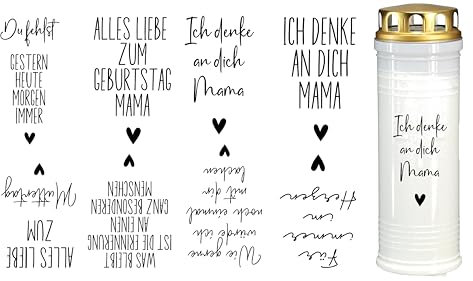 Du fehlst
GESTERN
HEUTE
MORGEN
IMMER
ALLES LIEBE
ZUM
GEBURTSTAG
MAMA
Ich denke
an dich
Mama
ICH DENKE
AN DICH
MAMA
ALLES LIEBE
ZUM
Muttertag
WAS BLEIBT
IST DIE ERINNERUNG
AN EINEN
GANZ BESONDEREN
MENSCHEN
Wie gerne
würde ich
noch einmal
mit dir
lachen
Für
immer
im
Herzen
Ich denke
an dich
Mama